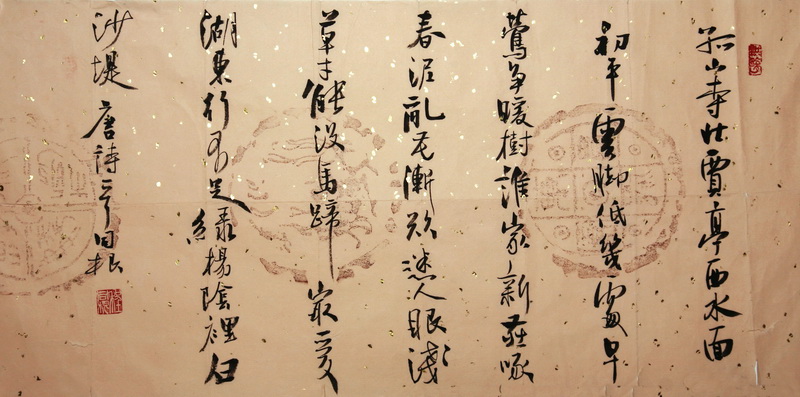 孤山寺北賈亭西水面
初平雲脚低幾處早
鶯争暖樹誰家新燕啄
春泥亂花漸欲迷人眼淺
草才能没馬蹄 最愛
湖東行不足綠楊陰裡白
沙堤 唐詩